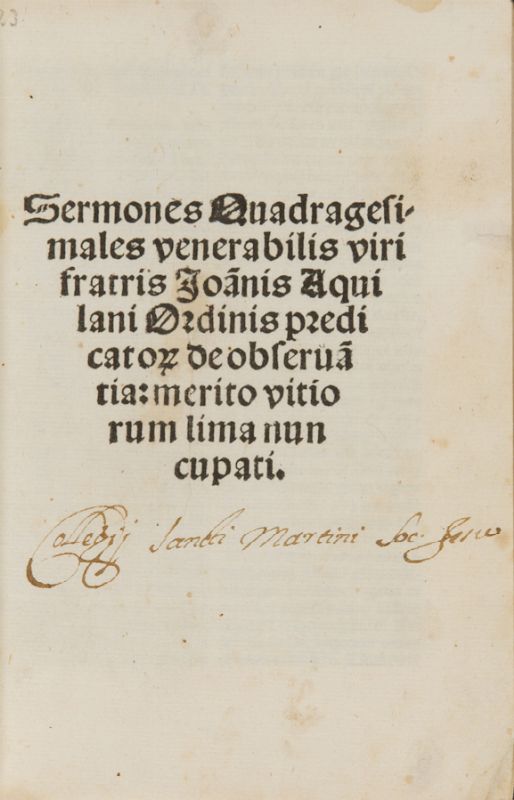 23
Sermones Quadragesi-
males venerabilis viri
fratris Joãnis Aqui
lani Ordinis predi
catoꝝ de obseruã
tia: merito vitio
rum lima nun
cupati.
Collegij Sancti Martini Soc. Jesu